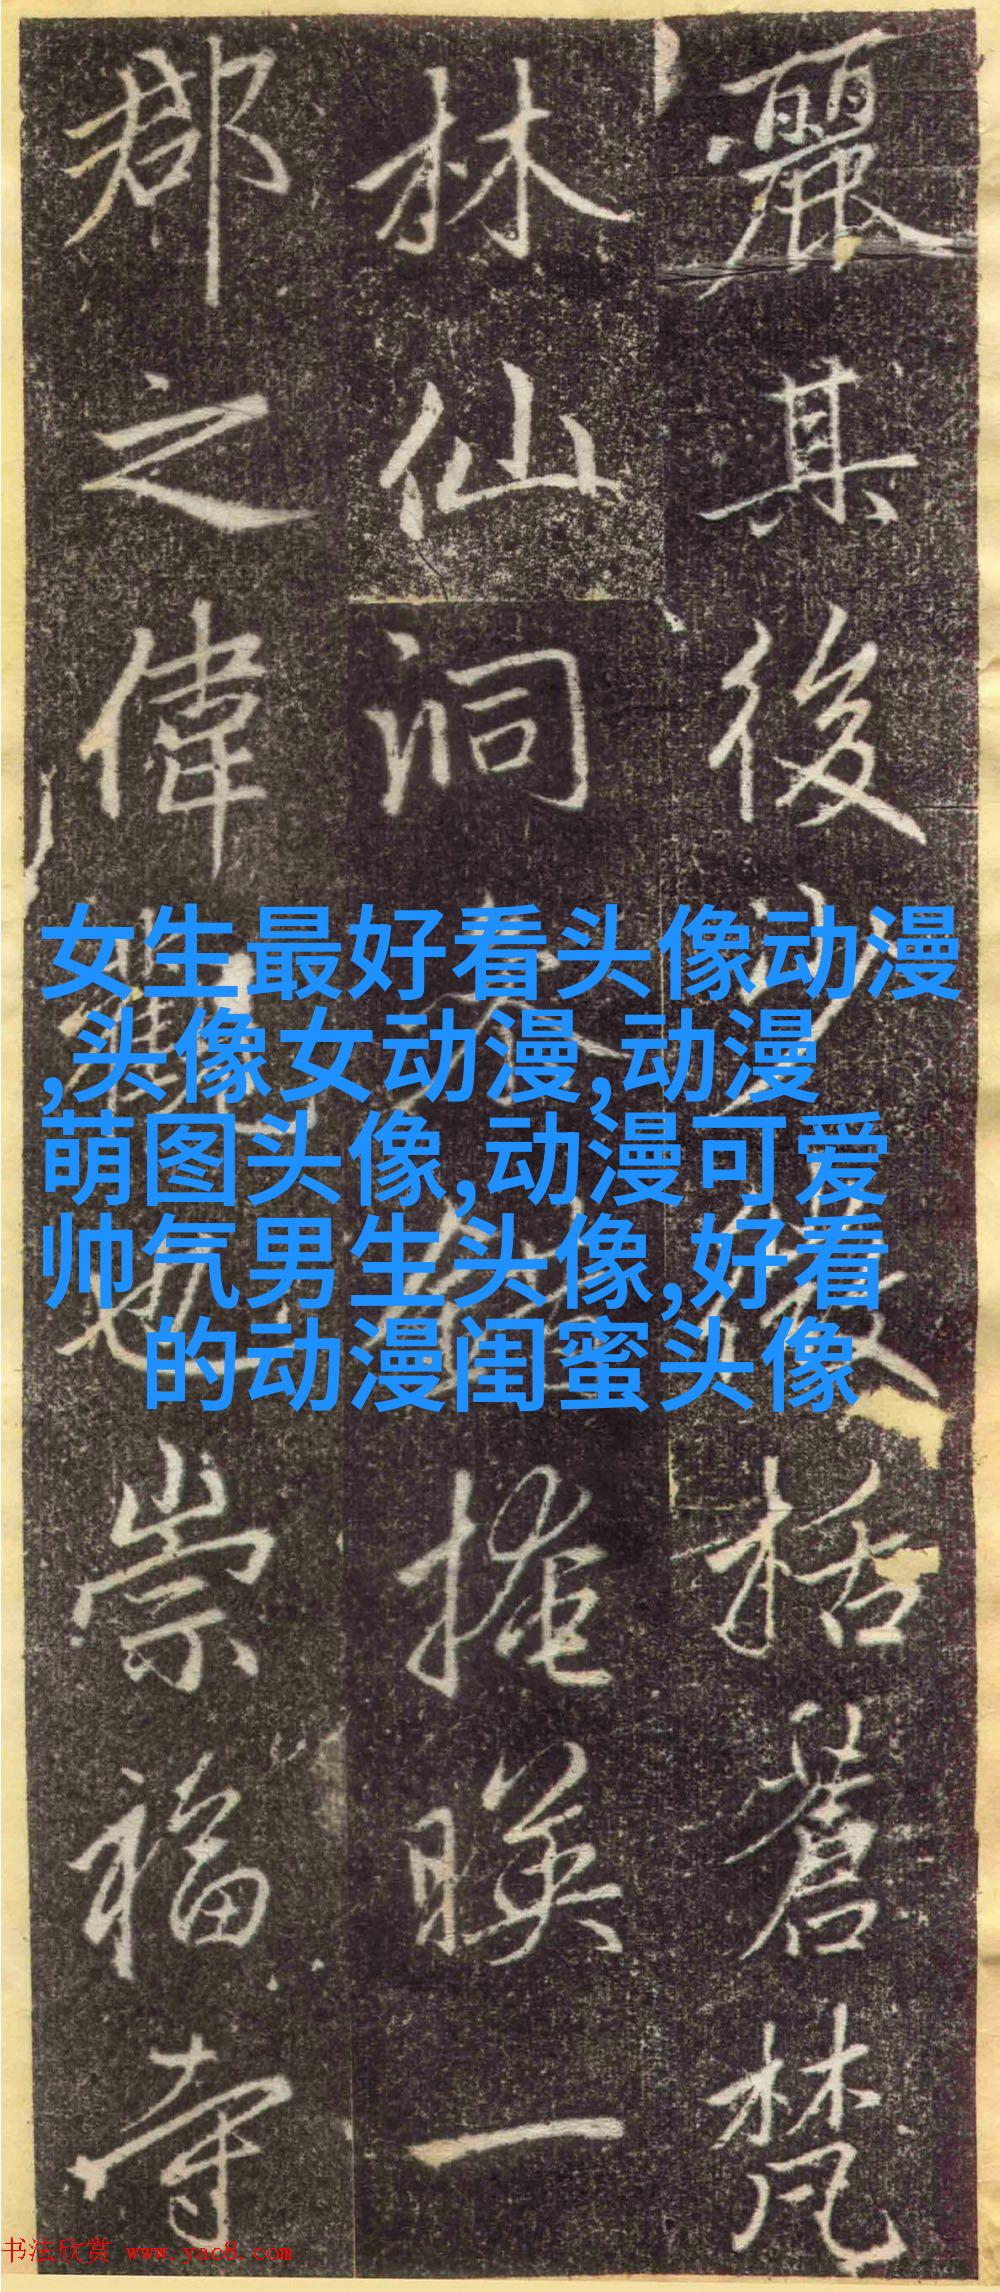 麗其後
括蒼梵
林仙洞
掩暎一
郡之偉
也崇福寺
女生最好看头像动漫
,头像女动漫,动漫
萌图头像,动漫可爱
帅气男生头像,好看
的动漫闺蜜头像
书法欣赏 www.yac8.com